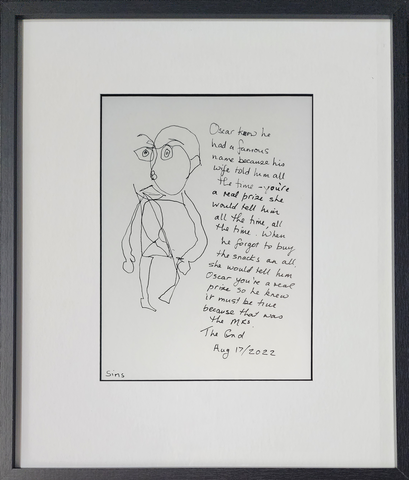 Oscar knew he
had a famous
name because his
wife told him all
the time - you're
a real prize she
would tell him
all the time, all
the time. When
he forgot to buy
the snacks an all.
she would tell him
Oscar you're a real
prize so he knew
it must be true
because that was
the MRS.
The End
Aug 17/2022
Sins